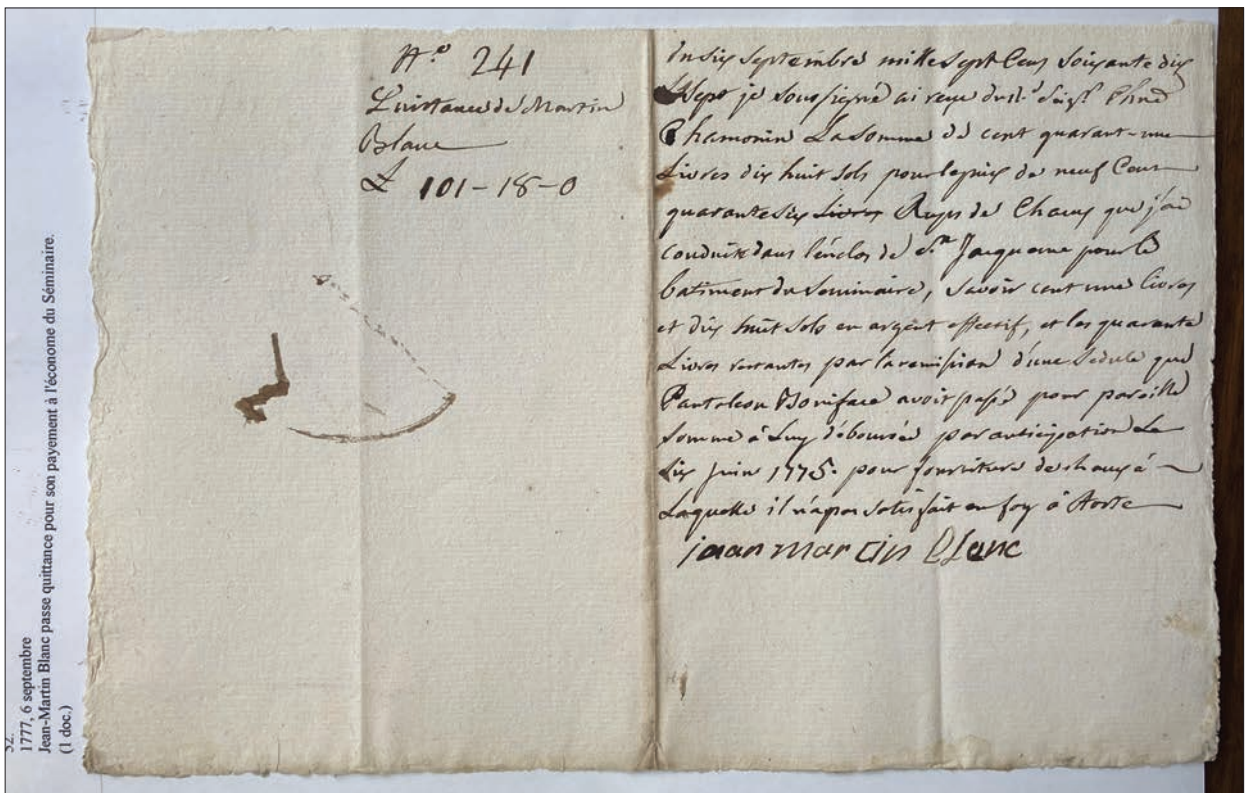 52.
1777, 6 septembre
Jean-Martin Blanc passe quittance pour son payement à l'économe du Séminaire.
(1 doc.)
N.° 241
Quittance de Martin
Blanc
L 101-18-0
Du six Septembre mille sept Cens soixante dix
Sept je soussigné ai reçu du
Chamonin La somme de cent quarant-une
Livres dix huit sols pour le prix de neuf Cent
quarante six Livres Rups de Chaux que j'ai
conduite dans l'enclos de S.te Jacqueme pour le
batiment du Seminaire, savoir cent une livres
et dix huit sols en argent effectif, et les quarante
Livres restantes par la remission d'une Sedule que
Pantaleon Boniface avoit passé pour pareille
somme à Luy déboursée par anticipation Le
Six Juin 1775. pour fourniture de chaux à
Laquelle il n'a pas satisfait en foy à Aoste
jean martin blanc